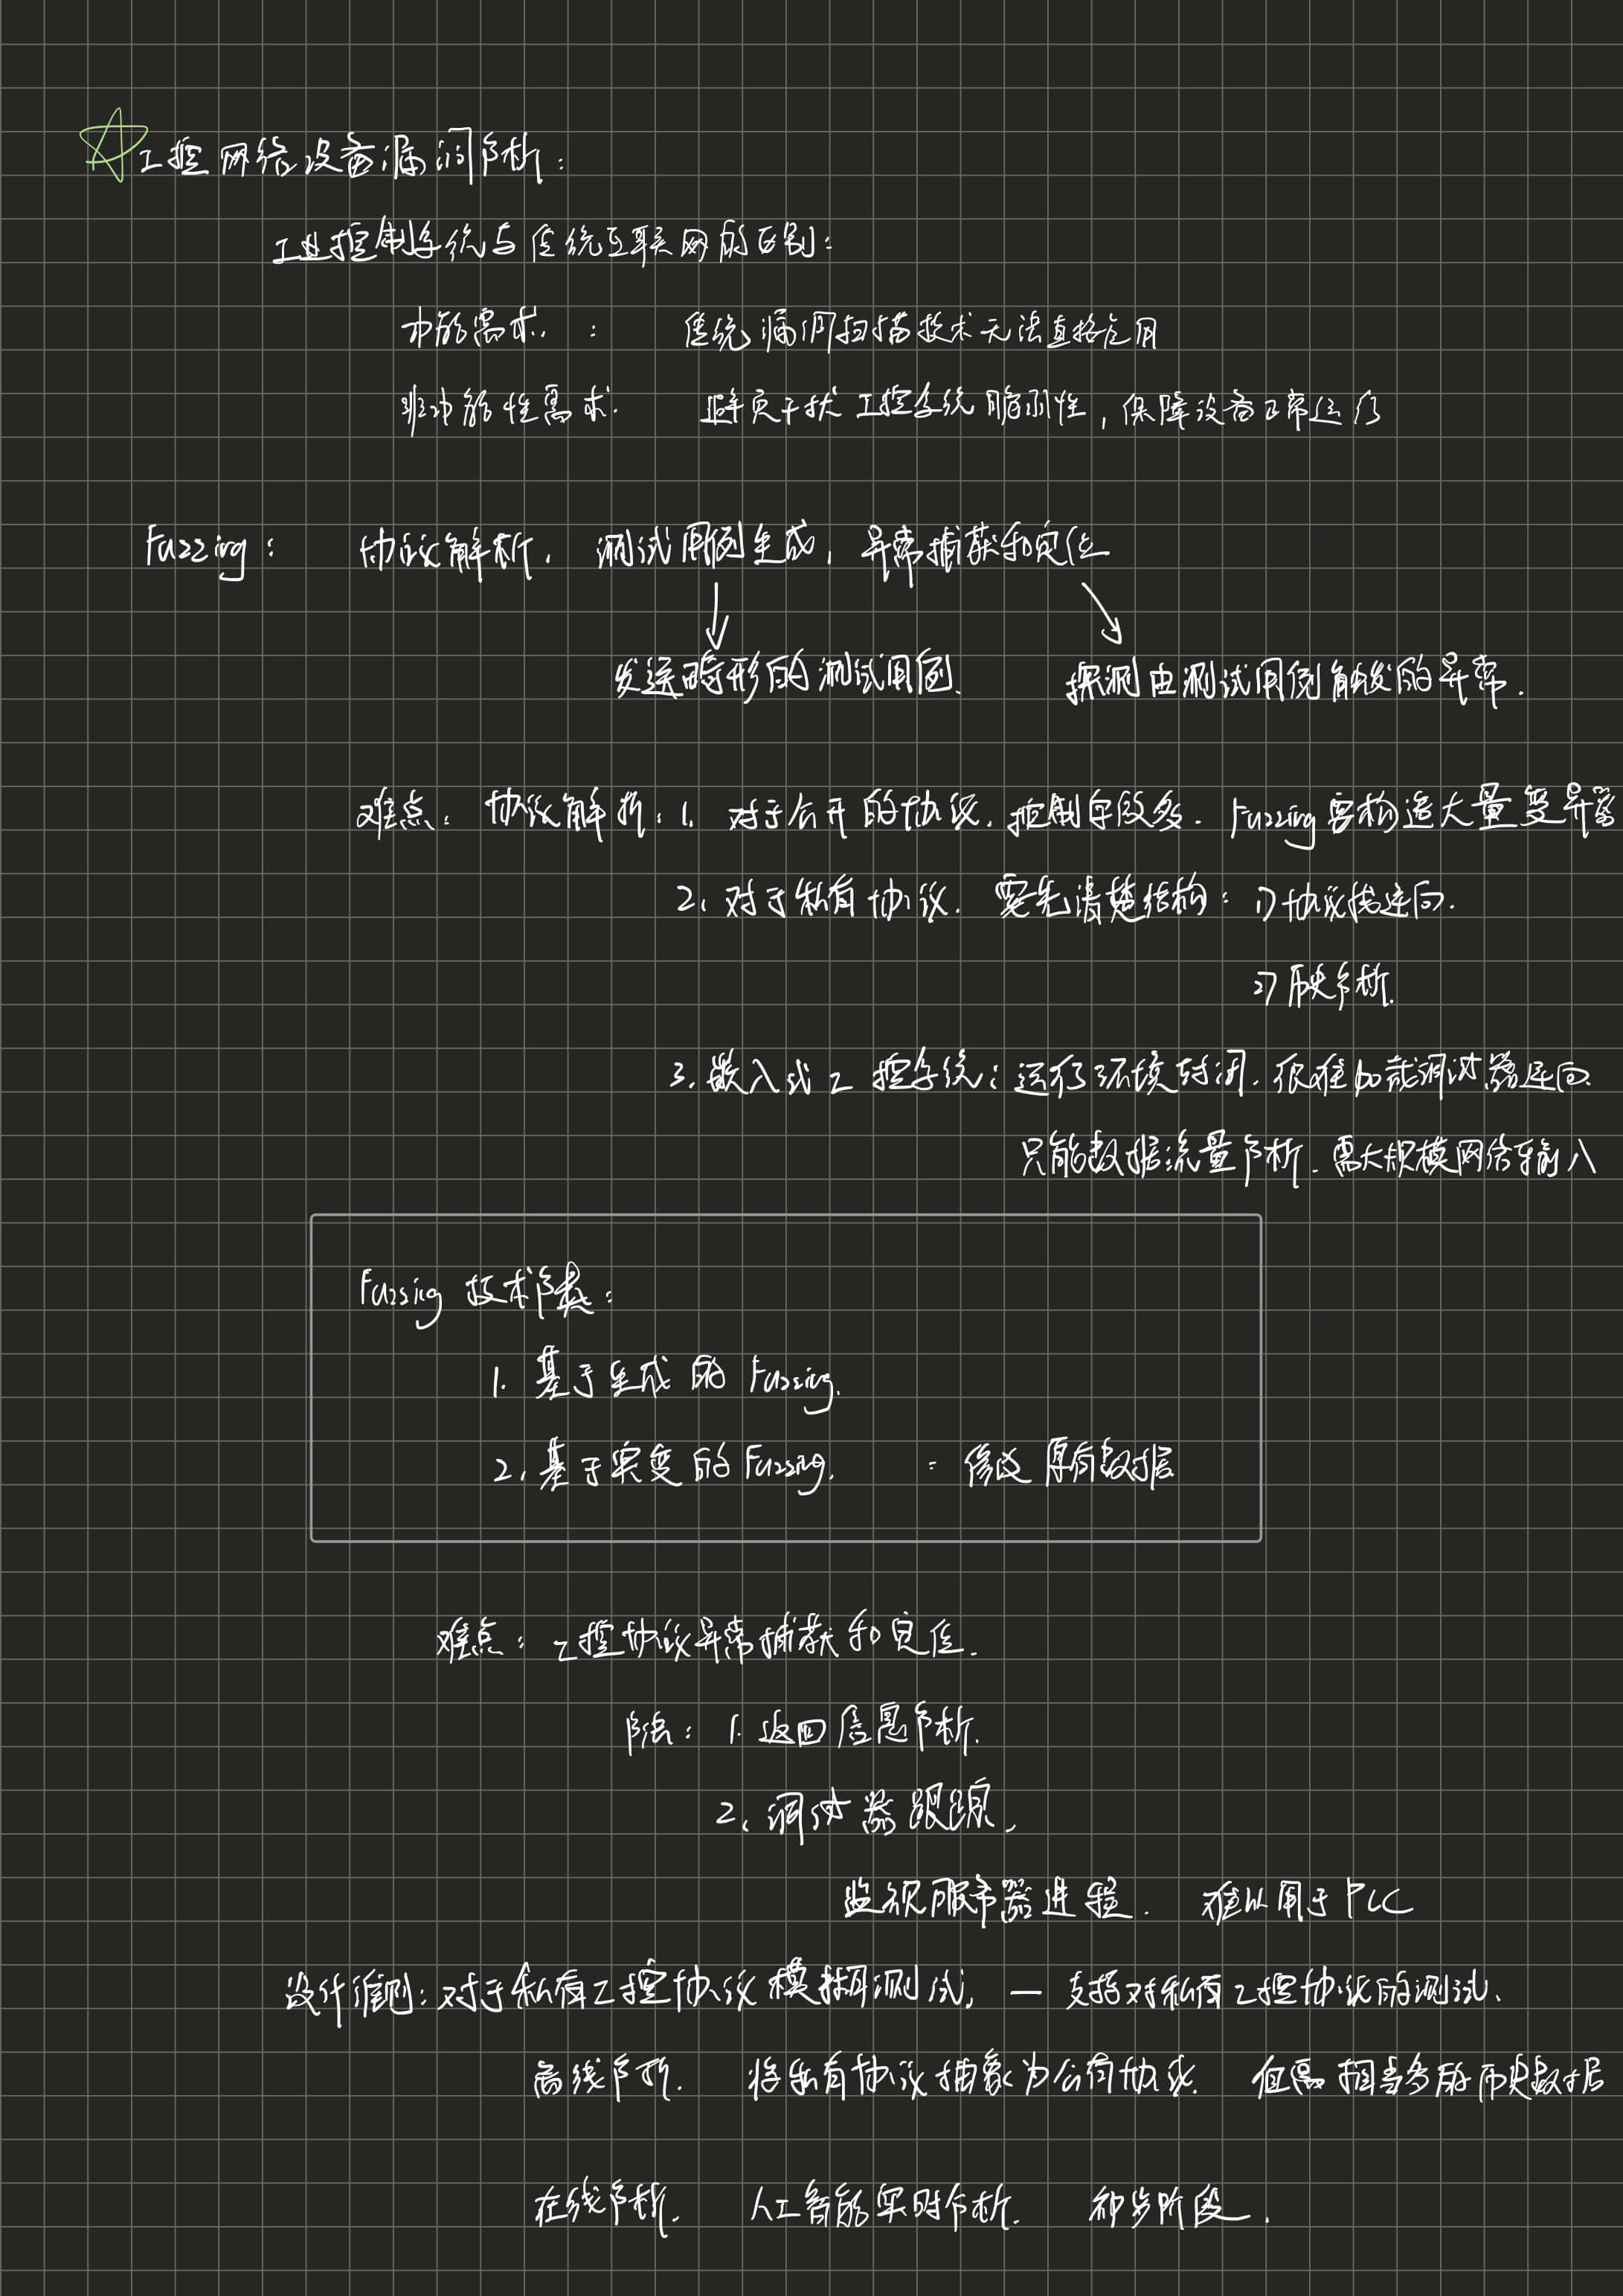 工控网络设备漏洞分析:
工业控制系统与传统互联网的区别:
功能需求. : 传统漏洞扫描技术无法直接应用
非功能性需求. 避免干扰工控系统脆弱性,保障设备正常运行
Fuzzing: 协议解析. 测试用例生成, 异常捕获和定位
发送畸形的测试用例. 探测由测试用例触发的异常.
难点: 协议解析: 1. 对于公开的协议. 控制字段多. Fuzzing需构造大量变异
2. 对于私有协议. 要先清楚结构: 1) 协议栈逆向.
2) 历史分析.
3. 嵌入式工控系统: 运行环境封闭. 很难加载调试器逆向.
只能数据流量分析. 需大规模网络输入
Fuzzing 技术:
1. 基于生成的 Fuzzing.
2. 基于突变的 Fuzzing. : 修改原有数据
难点: 工控协议异常捕获和定位.
方法: 1. 返回信息分析.
2. 调试器跟踪.
监视服务器进程. 难以用于PLC
设计准则: 对于私有工控协议模糊测试. — 支持对私有工控协议的测试.
离线分析. 将私有协议抽象为公有协议. 但需相当多的历史数据
在线分析. 人工智能实时分析. 初步阶段.